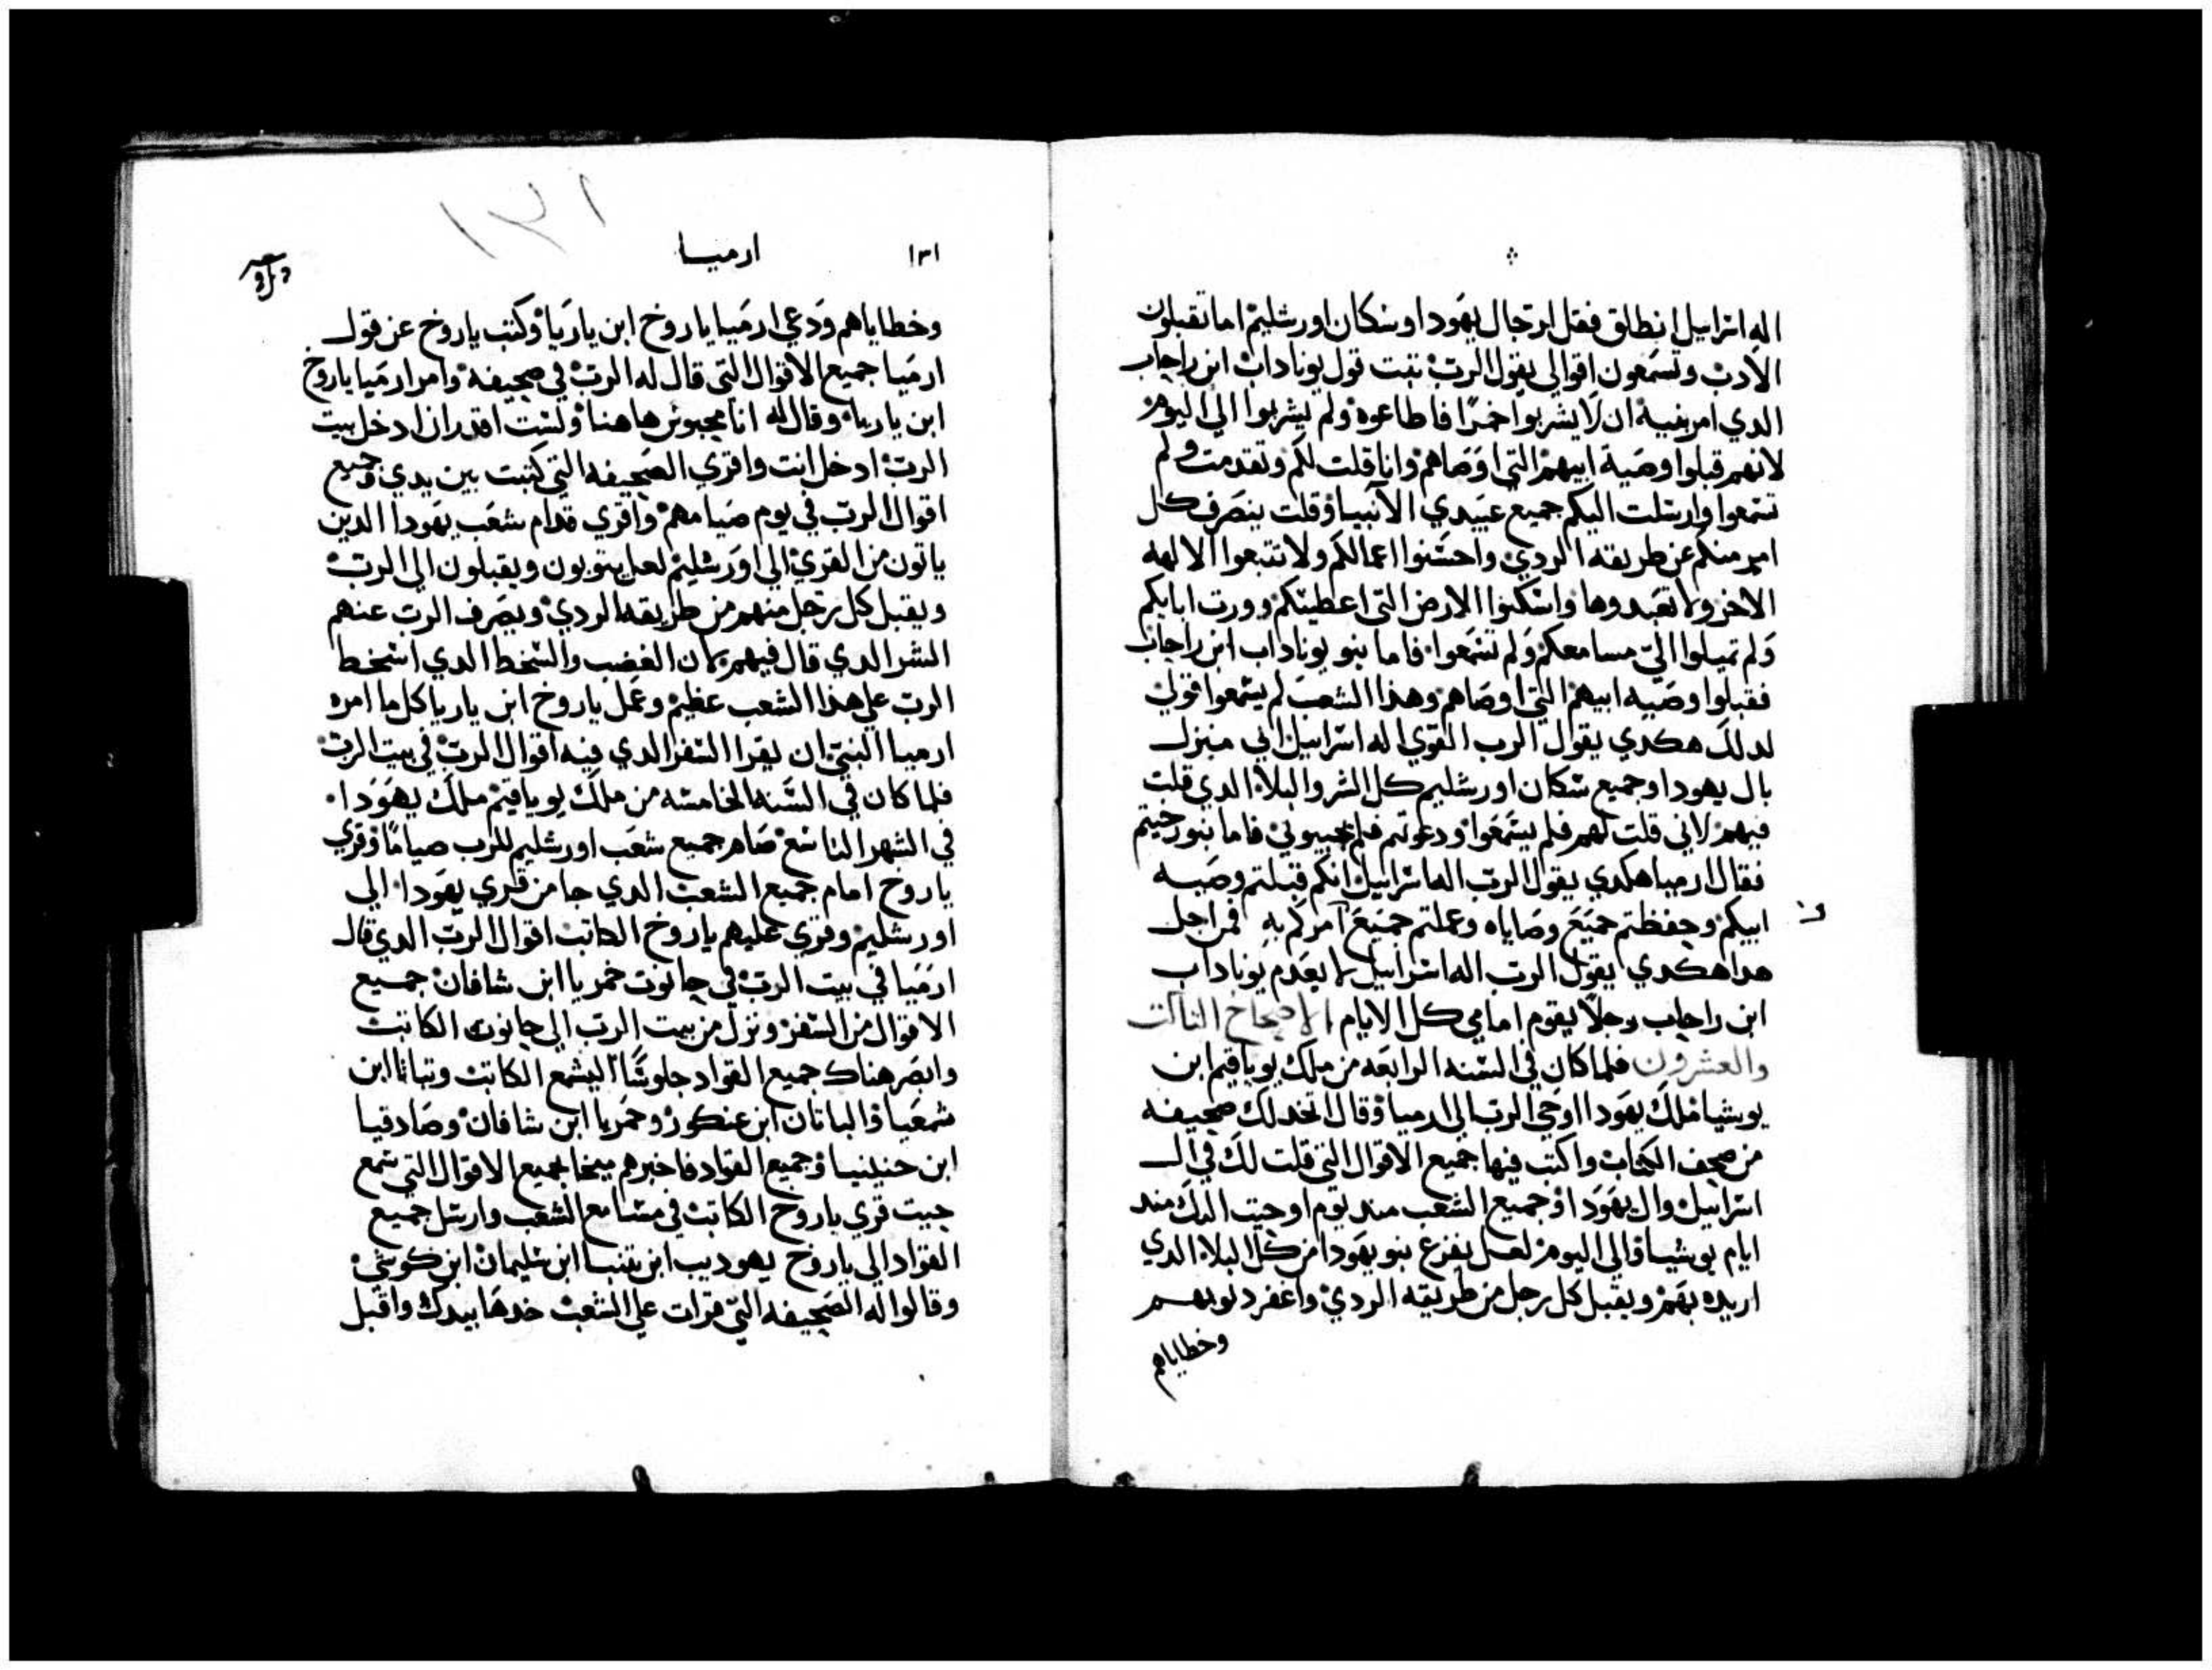 اله اسراييل انطلق فقل لرجال يهودا وسكان اورشليم اما تقبلون
الادب وتسمعون اقوالي يقول الرب ثبتت قول يوناداب ابن راجاب
الدي امر بنيه ان لا يشربوا خمرًا فاطاعوه ولم يشربوا الي اليوم
لانهم قبلوا وصية ابيهم التي اوصاهم وانا قلت لكم وتقدمت ولم
تسمعوا وارسلت اليكم جميع عبيدي الانبيا وقلت ينصرف كل
امر منكم عن طريقه الردي واحسنوا اعمالكم ولا تتبعوا الالهه
الاخر ولا تعبدوها واسكنوا الارض التي اعطيتكم وورت ابايكم
ولم تميلوا اليّ مسامعكم ولم تسمعوا فاما بنو يوناداب ابن راجاب
فقبلوا وصيه ابيهم التي اوصاهم وهدا الشعب لم يسمعوا قولي
لدلك هكدي يقول الرب القوي اله اسراييل اني منزل
بال يهودا وجميع سكان اورشليم كل الشر والبلاء الدي قلت
فيهم لاني قلت لهم فلم يسمعوا ودعوتهم فلم يجيبوني فاما بنو رحيتم
فقال ارميا هكدي يقول الرب اله اسراييل انكم قبلتم وصيه
ابيكم وحفظتم جميع وصاياه وعملتم جميع امركم به فمن اجل
هدا هكدي يقول الرب اله اسراييل لا يعدم يوناداب
ابن راجاب رجلًا يقوم امامي كل الايام الاصحاح التالت
والعشرون فلما كان في السنه الرابعه من ملك يوياقيم ابن
يوشيا ملك يهودا اوحي الرب الي ارميا وقال اتخد لك صحيفه
من صحف الكتاب واكتب فيها جميع الاقوال التي قلت لك في ال
اسراييل وال يهودا وجميع الشعب مند يوم اوحيت اليك مند
ايام يوشيا والي اليوم لعل يفزع بنو يهودا من كل البلاء الدي
اريده بهم ويقبل كل رجل من طريقه الردي واغفر دنوبهم
وخطاياهم
١٣١
١٣١ ارميا
وخطاياهم ودعي ارميا ياروخ ابن ياريا وكتب ياروخ عن قول
ارميا جميع الاقوال التي قال له الرب في صحيفه وامر ارميا ياروخ
ابن ياريا وقال له انا محبوس هاهنا ولست اقدر ان ادخل بيت
الرب ادخل انت واقري الصحيفه التي كتبت بين يدي وجميع
اقوال الرب في يوم صيامهم واقري قدام شعب يهودا الدين
ياتون من القري الي اورشليم لعل يتوبون ويقبلون الي الرب
ويقبل كل رجل منهم من طريقه الردي ويصرف الرب عنهم
الشر الدي قال فيهم لان الغضب والسخط الدي اسخط
الرب علي هدا الشعب عظيم وعمل ياروخ ابن ياريا كل ما امره
ارميا النبي ان يقرا السفر الدي فيه اقوال الرب في بيت الرب
فلما كان في السنه الخامسه من ملك يوياقيم ملك يهودا
في الشهر التاسع صام جميع شعب اورشليم للرب صيامًا وقري
ياروخ امام جميع الشعب الدي جا من قري يهودا الي
اورشليم وقري عليهم ياروخ الكاتب اقوال الرب الدي قال
ارميا في بيت الرب في حانوت خمريا ابن شافان جميع
الاقوال من السفر ونزل من بيت الرب الي حانوت الكاتب
وابصر هناك جميع القواد جلوسًا اليشمع الكاتب ابن
شمعيا والياتان ابن عنكور وحمريا ابن شافان وصادقيا
ابن حنينيا وجميع القواد فاخبرهم ميخا بجميع الاقوال التي سمع
حيت قري ياروخ الكاتب في مسامع الشعب وارسل جميع
القواد الي ياروخ يهوديب ابن ابن سليمان ابن كوشي
وقالوا له الصحيفه التي قرات علي الشعب خدها بيدك واقبل